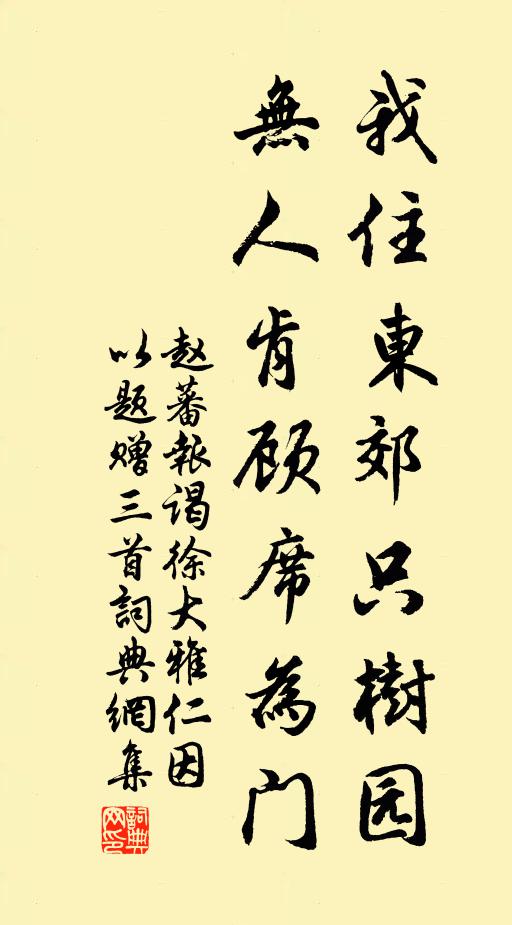 我住東郊只樹园
無人肯顾席為门
赵蕃報谒徐大雅仁因
以题赠三首詞典網集
詞典網印